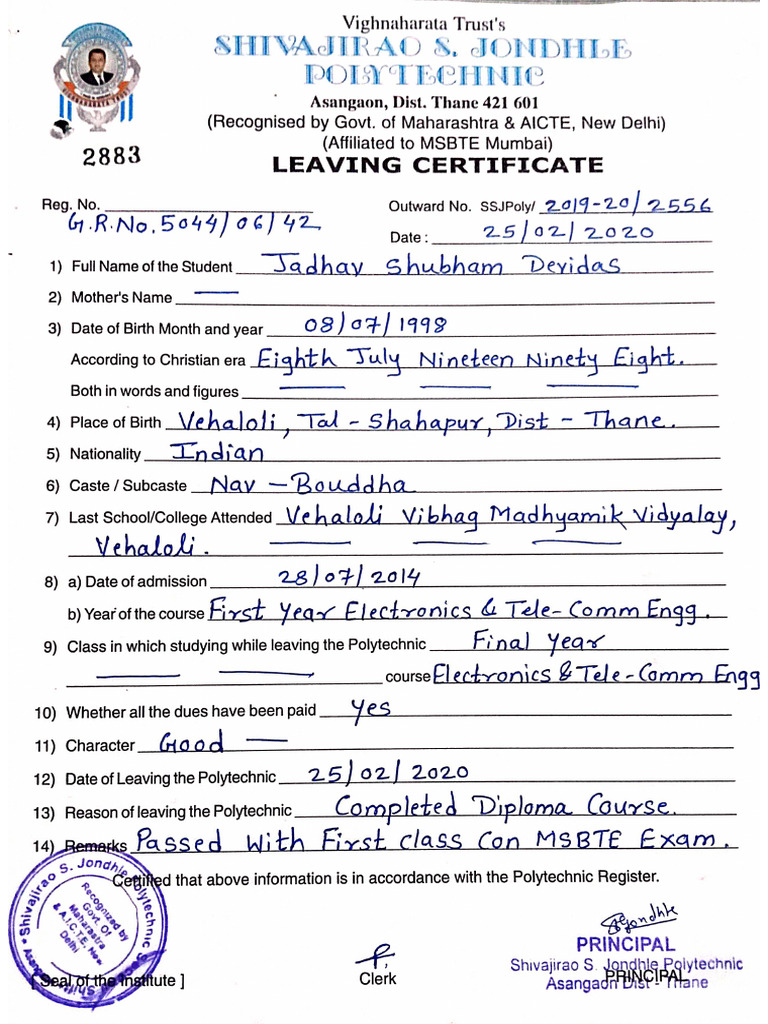 Vighnaharata Trust's
SHIVAJIRAO S. JONDHLE
POLYTECHNIC
Asangaon, Dist. Thane 421 601
(Recognised by Govt. of Maharashtra & AICTE, New Delhi)
(Affiliated to MSBTE Mumbai)
2883
LEAVING CERTIFICATE
Reg. No. G.R.No. 5044/06/42
Outward No. SSJPoly/ 2019-20/2556
Date : 25/02/2020
1) Full Name of the Student Jadhav Shubham Devidas
2) Mother's Name —
3) Date of Birth Month and year 08/07/1998
According to Christian era Eighth July Nineteen Ninety Eight.
Both in words and figures — — —
4) Place of Birth Vehaloli, Tal - Shahapur, Dist - Thane.
5) Nationality Indian
6) Caste / Subcaste Nav - Bouddha
7) Last School/College Attended Vehaloli Vibhag Madhyamik Vidyalay,
Vehaloli. — — —
8) a) Date of admission 28/07/2014
b) Year of the course First Year Electronics & Tele-Comm Engg.
9) Class in which studying while leaving the Polytechnic Final Year
— — course Electronics & Tele-Comm Engg
10) Whether all the dues have been paid Yes
11) Character Good —
12) Date of Leaving the Polytechnic 25/02/2020
13) Reason of leaving the Polytechnic Completed Diploma Course.
14) Remarks Passed With First Class Con MSBTE Exam.
Certified that above information is in accordance with the Polytechnic Register.
Shivajirao S. Jondhle Polytechnic
Recognized by
Govt. Of
Maharashtra
& A.I.C.T.E. New
Delhi
[ Seal of the Institute ]
Clerk
Jondhle
PRINCIPAL
Shivajirao S. Jondhle Polytechnic
PRINCIPAL
Asangaon Dist - Thane